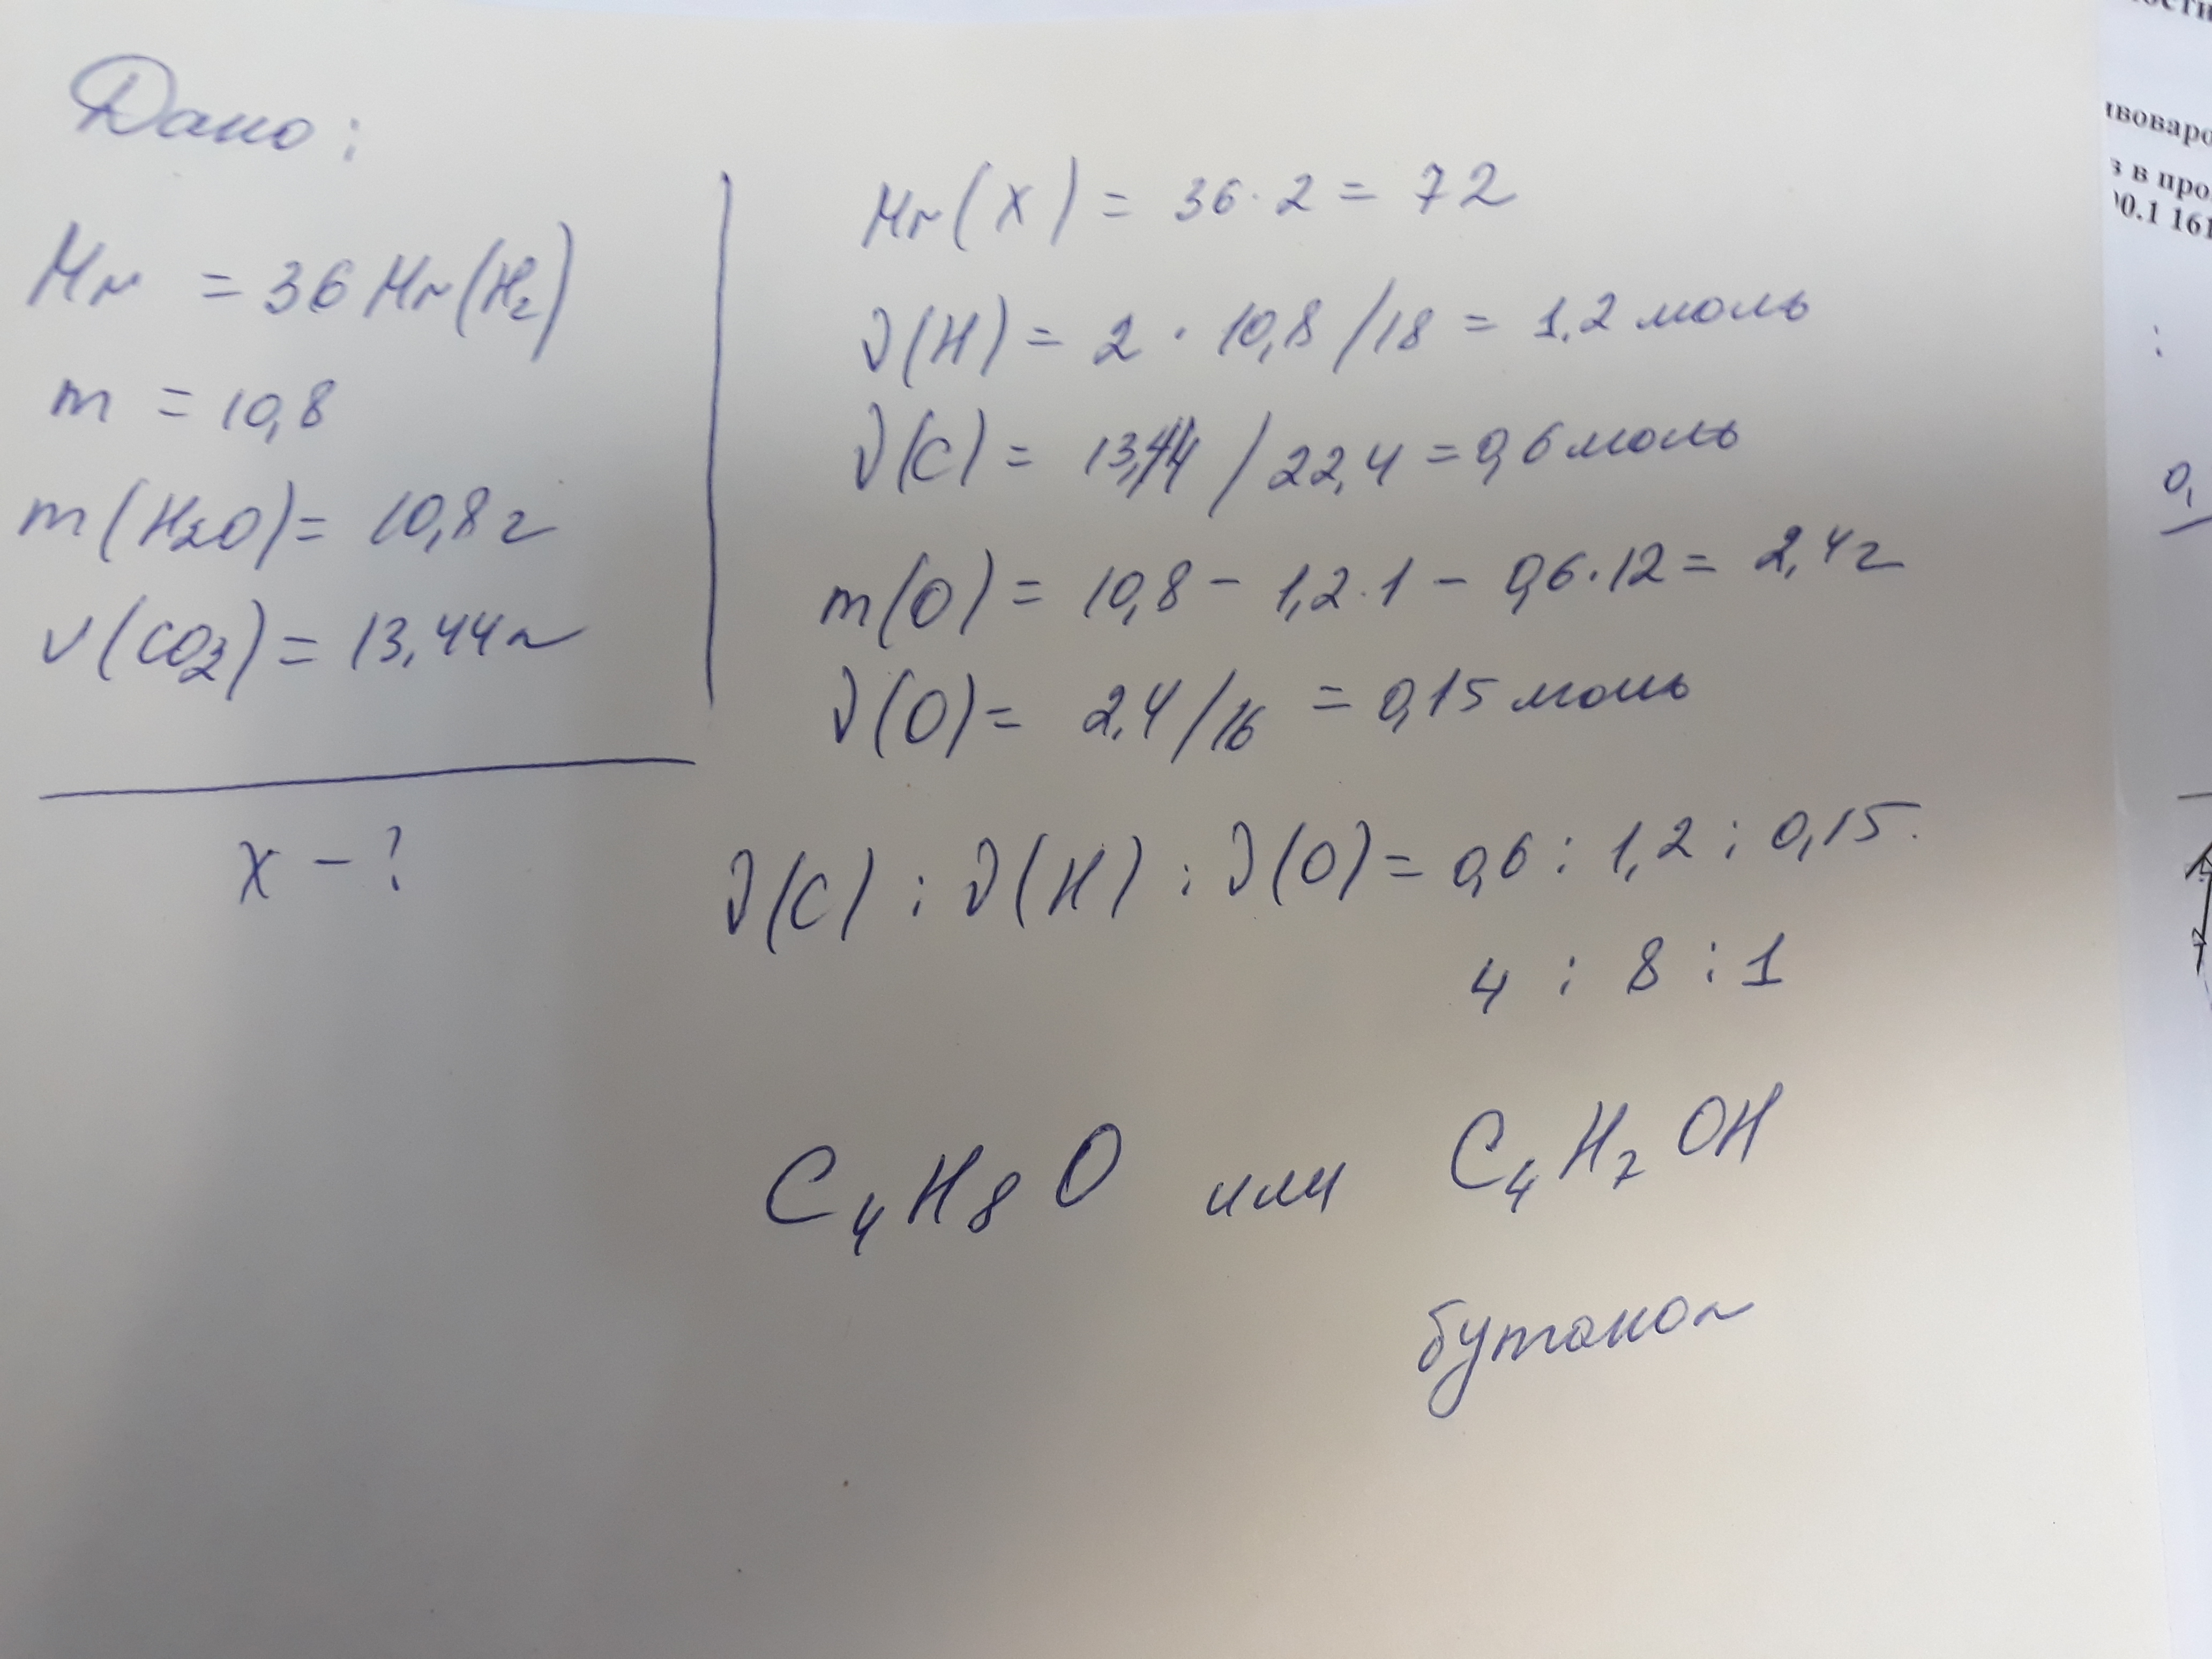 Дано:
Mr = 36 Mr(H2)
m = 10,8
m(H2O) = 10,8г
V(CO2) = 13,44л
x - ?
Mr(X) = 36·2 = 72
ν(H) = 2 · 10,8/18 = 1,2 моль
ν(C) = 13,44/22,4 = 0,6 моль
m(O) = 10,8 - 1,2·1 - 0,6·12 = 2,4г
ν(O) = 2,4/16 = 0,15 моль
ν(C) : ν(H) : ν(O) = 0,6 : 1,2 : 0,15
4 : 8 : 1
C4H8O или C4H7OH
бутанол
ости
ивоваро
з в про
00.1 161
:
0,